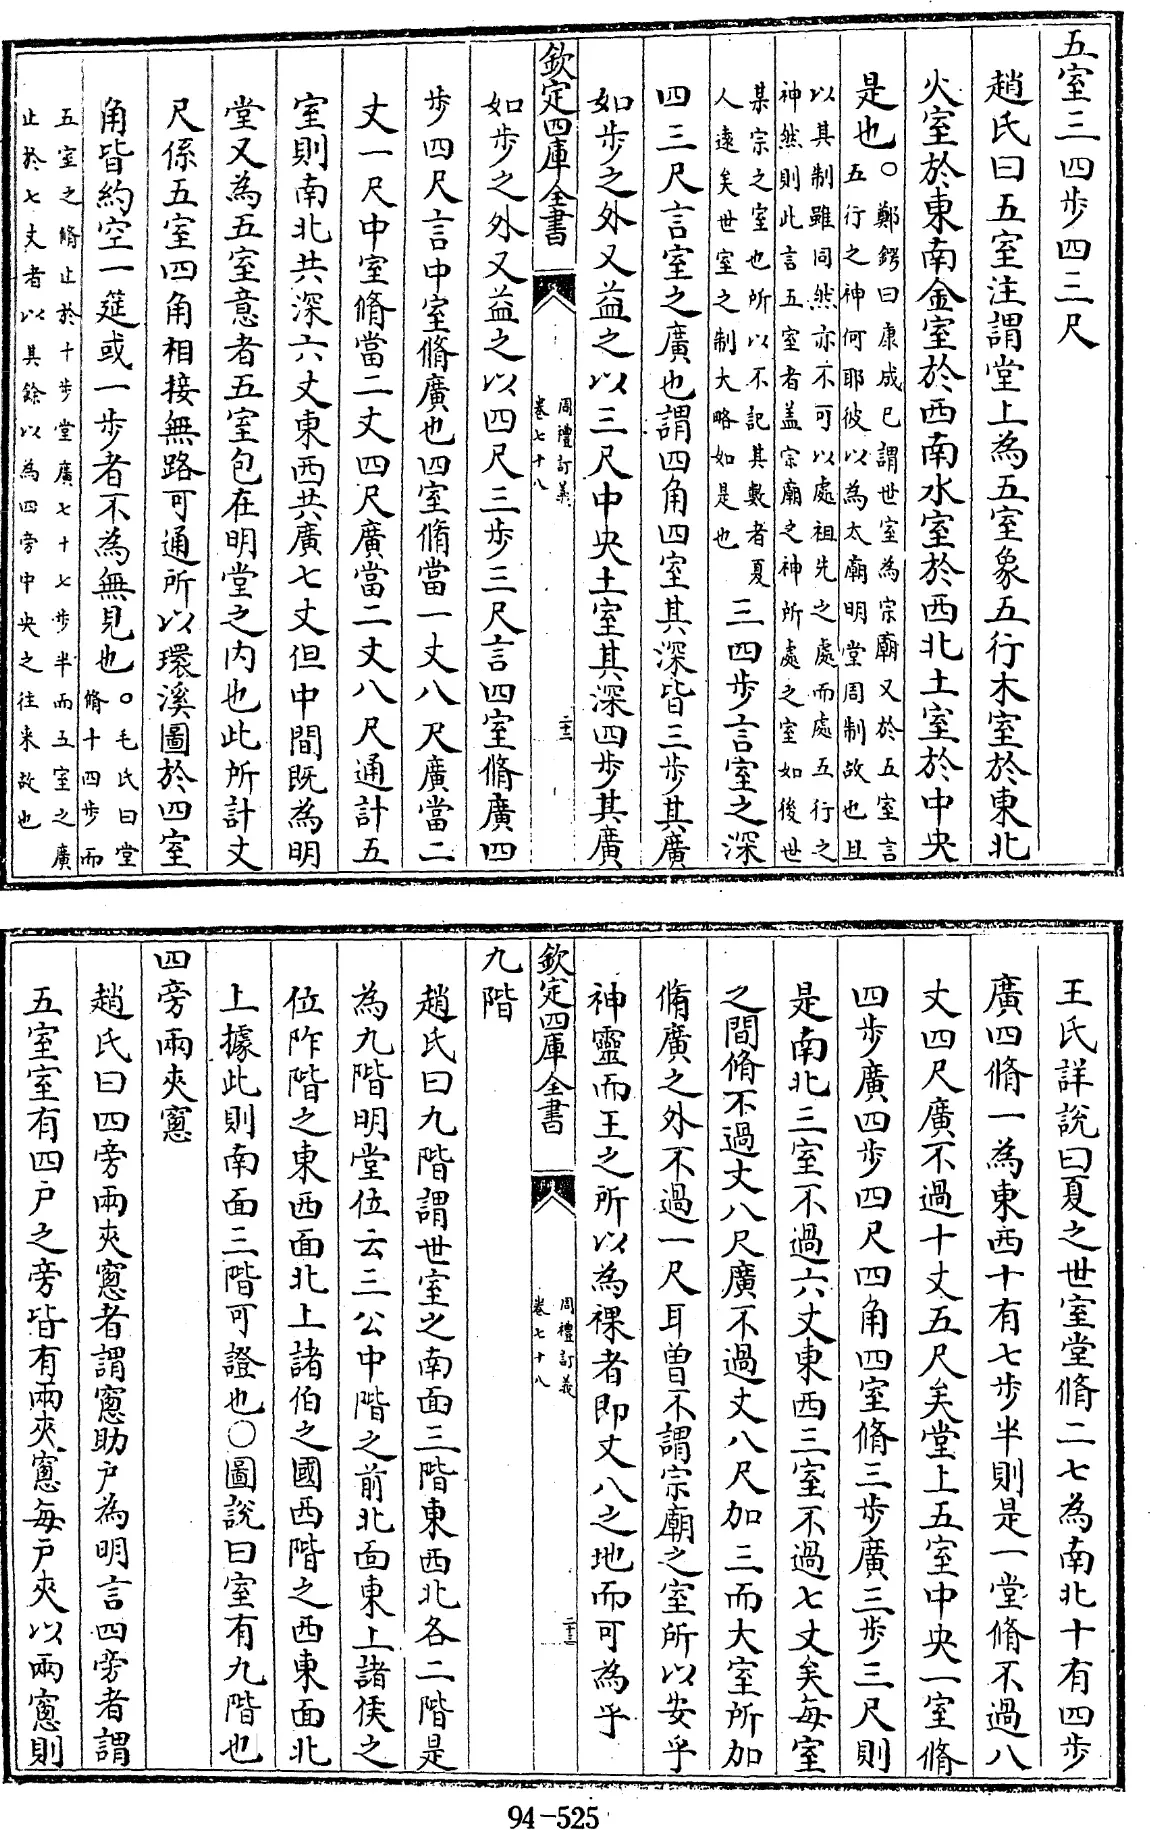 五室三四步四三尺
趙氏曰五室注謂堂上為五室象五行木室於東北
火室於東南金室於西南水室於西北土室於中央
是也○鄭鍔曰康成已謂世室為宗廟又於五室言
五行之神何耶彼以為太廟明堂周制故也且
以其制雖同然亦不可以處祖先之處而處五行之
神然則此言五室者盖宗廟之神所處之室如後世
某宗之室也所以不記其數者夏
人遠矣世室之制大略如是也
三四步言室之深
四三尺言室之廣也謂四角四室其深皆三步其廣
如步之外又益之以三尺中央土室其深四步其廣
欽定四庫全書
周禮訂義
卷七十八
二十二
如步之外又益之以四尺三步三尺言四室脩廣四
步四尺言中室脩廣也四室脩當一丈八尺廣當二
丈一尺中室脩當二丈四尺廣當二丈八尺通計五
室則南北共深六丈東西共廣七丈但中間既為明
堂又為五室意者五室包在明堂之内也此所計丈
尺係五室四角相接無路可通所以環溪圖於四室
角皆約空一筵或一步者不為無見也○毛氏曰堂
脩十四步而
五室之脩止於十步堂廣七十七步半而五室之廣
止於七丈者以其餘以為四旁中央之往来故也
王氏詳說曰夏之世室堂脩二七為南北十有四步
廣四脩一為東西十有七步半則是一堂脩不過八
丈四尺廣不過十丈五尺矣堂上五室中央一室脩
四步廣四步四尺四角四室脩三步廣三步三尺則
是南北三室不過六丈東西三室不過七丈矣每室
之間脩不過丈八尺廣不過丈八尺加三而大室所加
脩廣之外不過一尺耳曽不謂宗廟之室所以安乎
神靈而王之所以為祼者即丈八之地而可為乎
欽定四庫全書
周禮訂義
卷七十八
二十三
九階
趙氏曰九階謂世室之南面三階東西北各二階是
為九階明堂位云三公中階之前北面東上諸侯之
位阼階之東西面北上諸伯之國西階之西東面北
上據此則南面三階可證也○圖說曰室有九階也
四旁兩夾窻
趙氏曰四旁兩夾窻者謂窻助戶為明言四旁者謂
五室室有四戶之旁皆有兩夾窻每戶夾以兩窻則
94-525